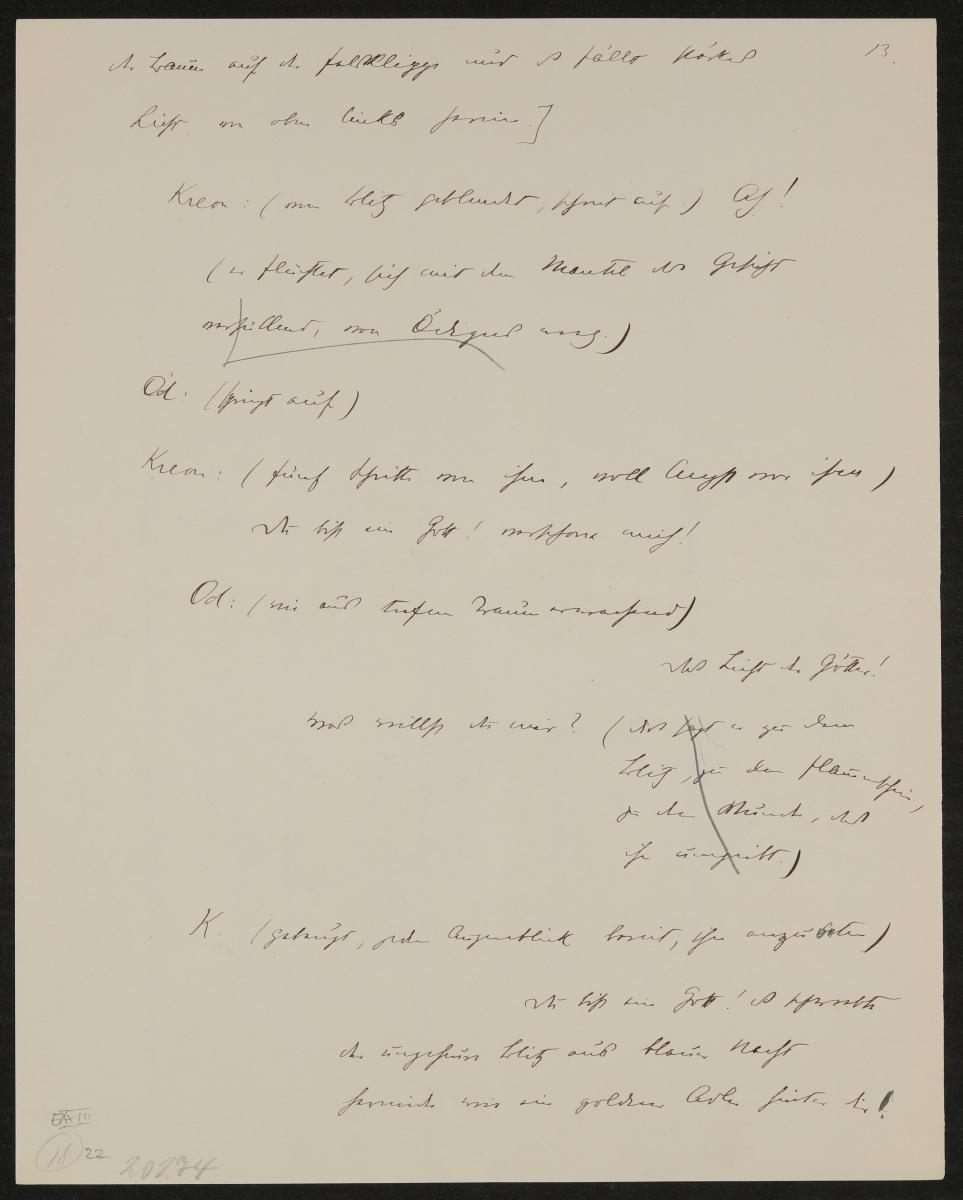 13.
der Baum auf der Felsklippe und es fällt starkes
Licht von oben links herein.]
Kreon: (vom Blitz geblendet, schreit auf.) Ah!
(er flüchtet, sich mit dem Mantel das Gesicht
verhüllend, von Ödipus weg.)
Öd: (springt auf)
Kreon: (fünf Schritte von ihm, voll Angst vor ihm)
Du bist ein Gott! verschone mich!
Od: (wie aus tiefem Traum erwachend)
Das Licht der Götter!
was willst du mir? (das sagt er zu dem
Blitz, zu dem Flammenschein,
zu dem Wunder, das
ihn umgiebt.)
K. (gebeugt, jeden Augenblick bereit, ihn anzubeten)
Du bist ein Gott! es schwebte
der ungeheure Blitz aus blauer Nacht
hernieder wie ein goldner Adler hinter dir!
EA III
18 22
20274